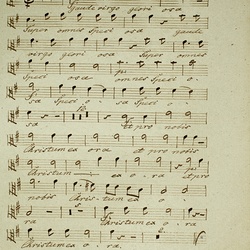 Gaude virgo glori osa
Super omnes Speci osa gaude
virgo glori osa Super omnes
Speci osa omnes Speci o-
sa Speci osa Speci o-
sa Et pro nobis
Christum exora et pro nobis
Christum exora Et pro
nobis Christum exo
ra Christum exora
Christum exo. ra.